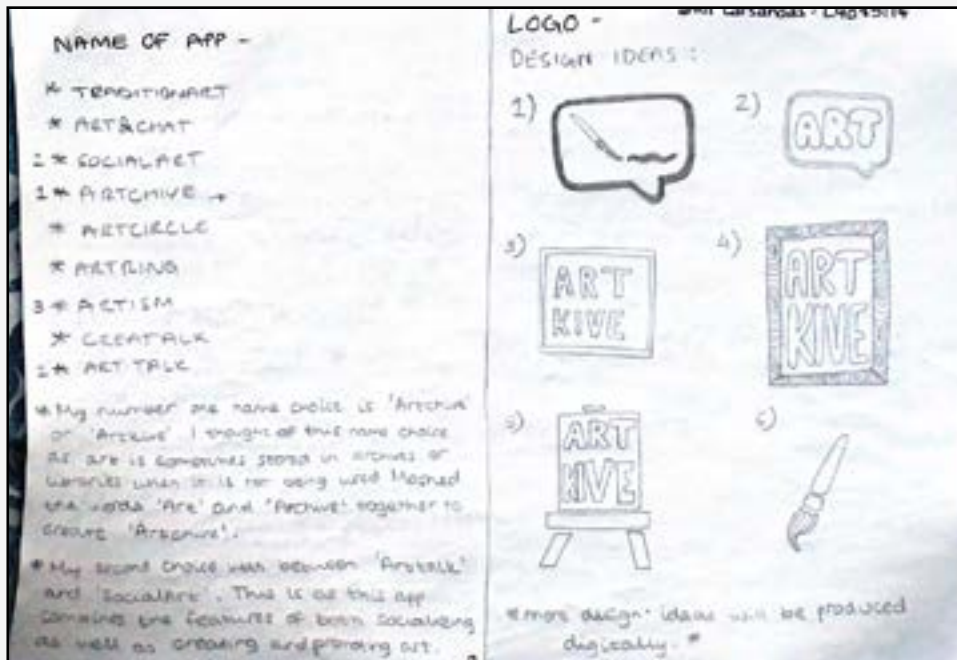 NAME OF APP -
* TRADITIONART
* ART&CHAT
2 * SOCIALART
1 * ARTCHIVE →
* ARTCIRCLE
* ARTRING
3 * ARTISM
* CREATALK
2 * ART TALK
* My number one name choice is 'Artchive'
or 'Artkive'. I thought of this name choice
as art is sometimes stored in archives or
libraries when it is not being used. Mashed
the words 'Art' and 'Archive' together to
create 'Artchive'.
* My second choice was between 'Arttalk'
and 'SocialArt'. This is as this app
combines the features of both socialising
as well as creating and art.
LOGO -
DESIGN IDEAS :
1)
2)
ART
3)
ART
KIVE
4)
ART
KIVE
5)
ART
KIVE
6)
* more design ideas will be produced
digitally. *